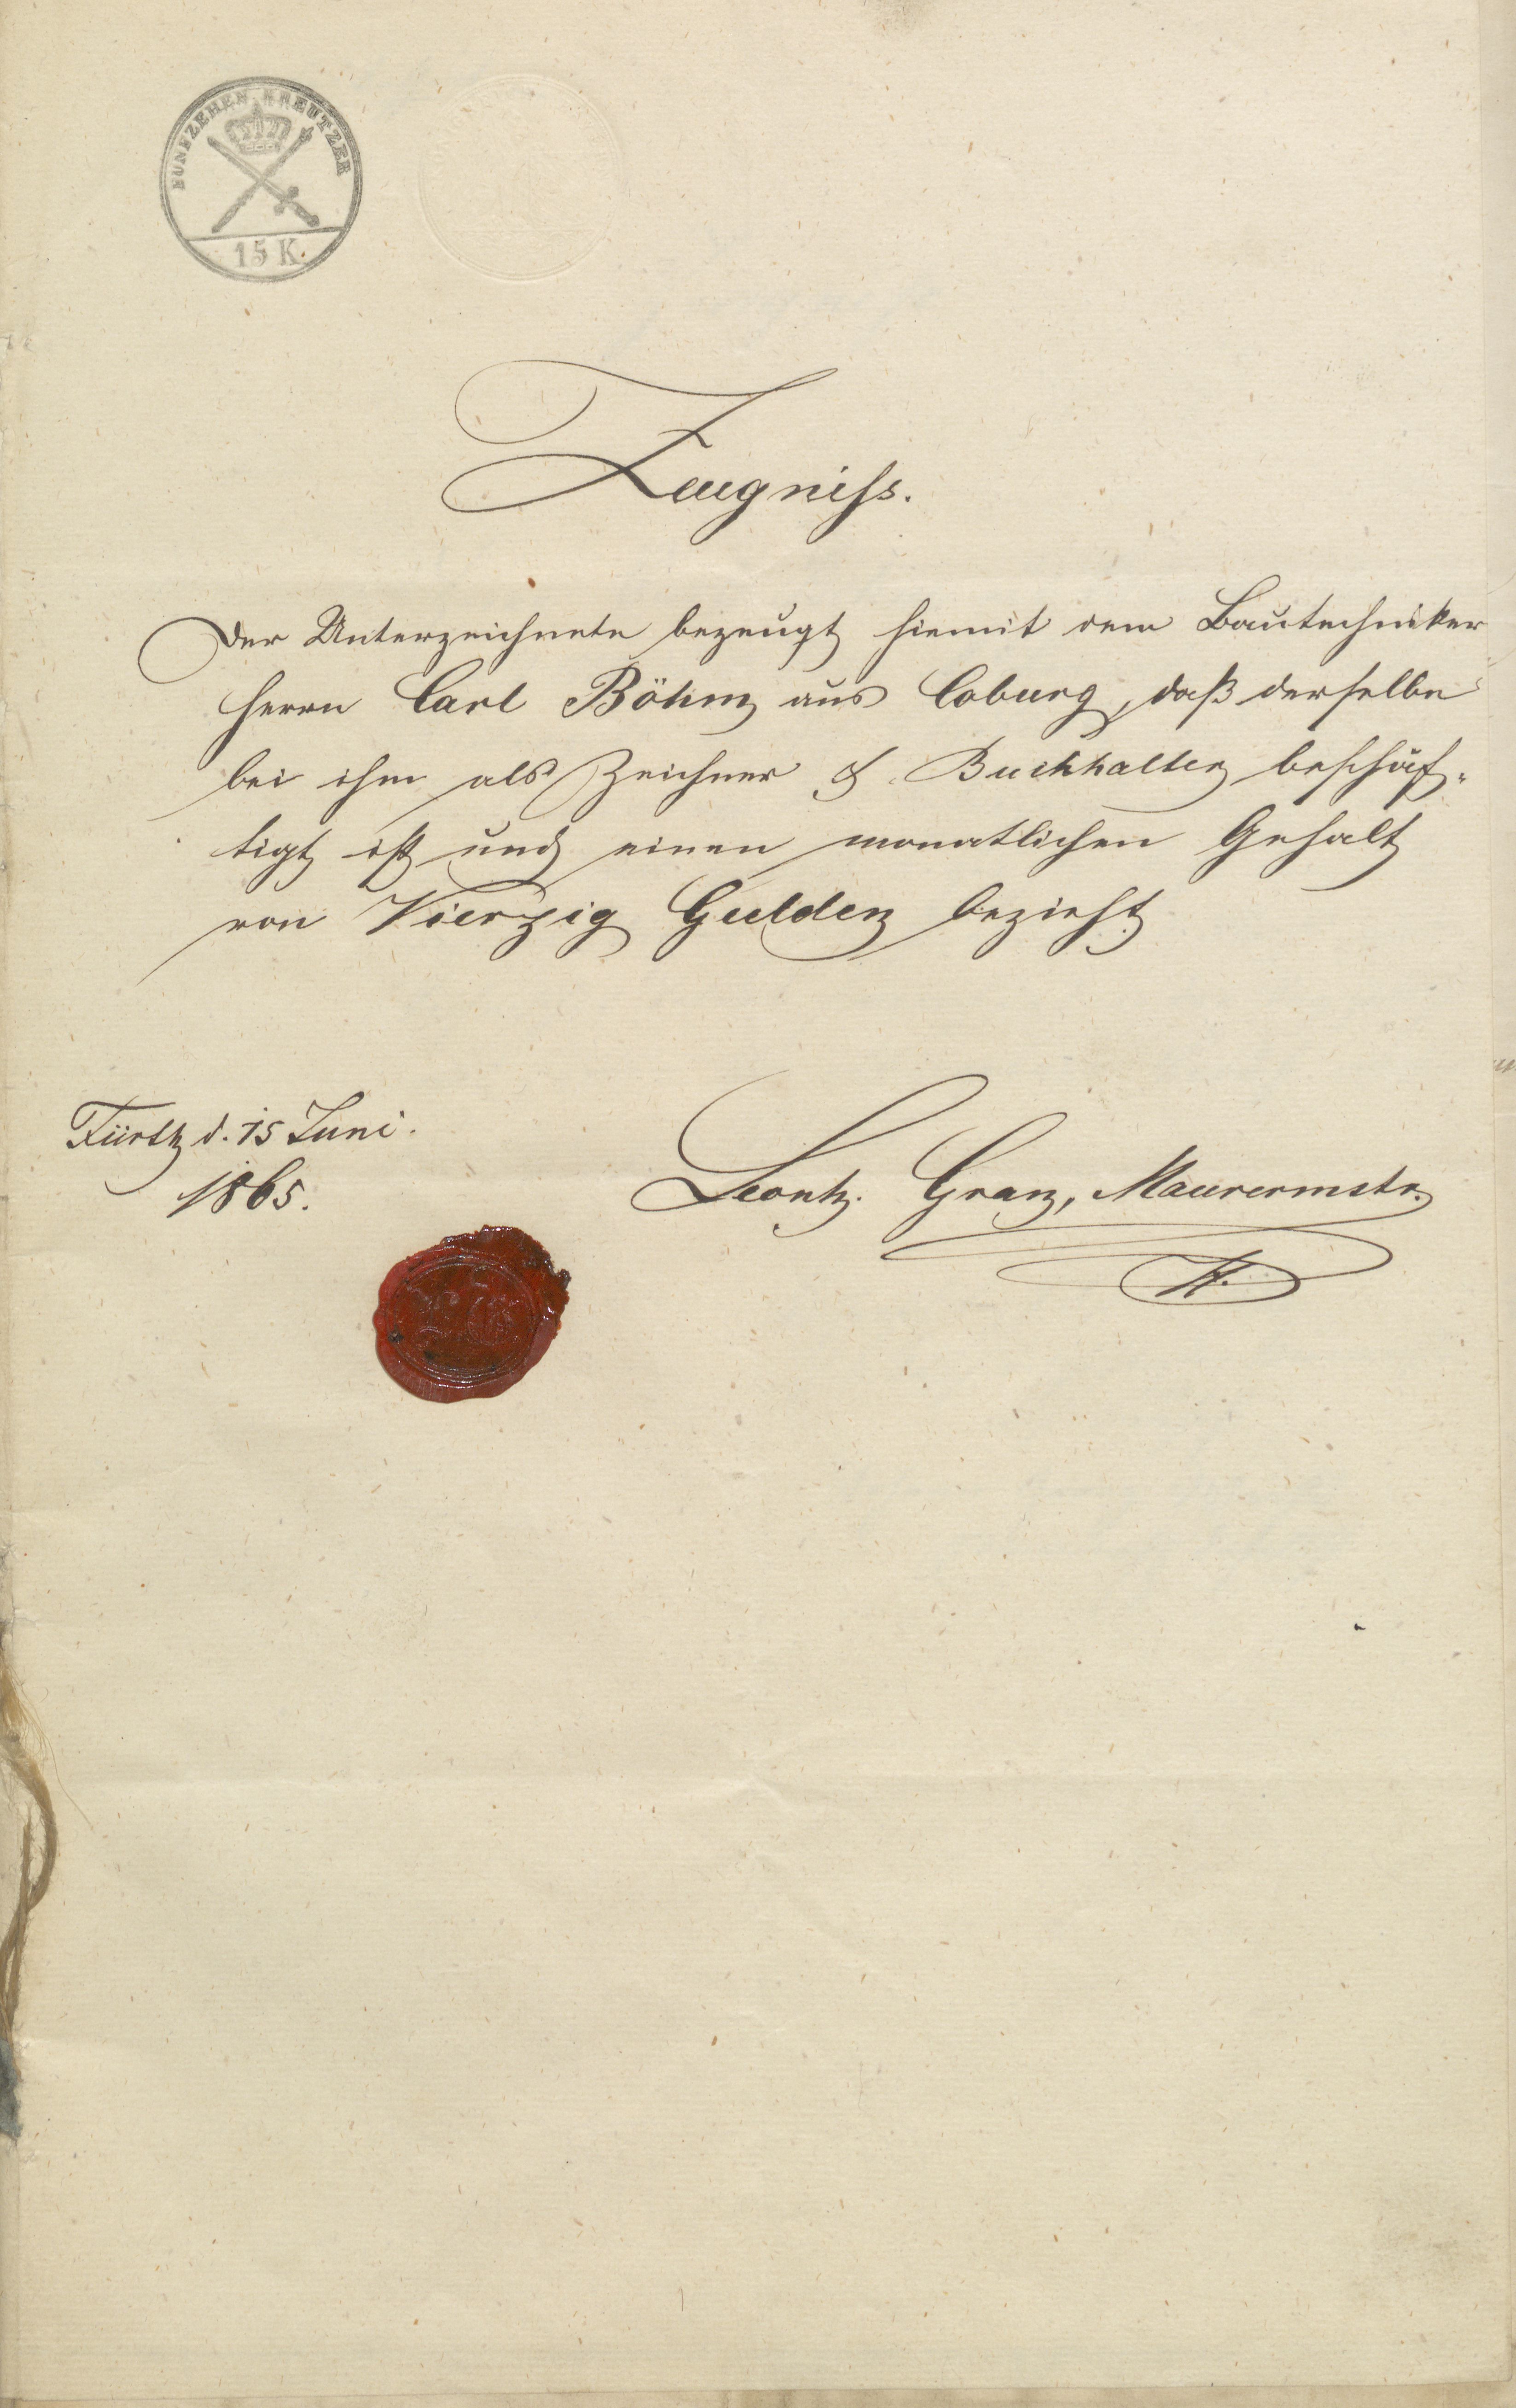 FUNFZEHEN KREUTZER
15 K.
Zeugniss.
Der Unterzeichnete bezeugt hiemit dem Bautechniker
Herrn Carl Böhm aus Coburg, daß derselbe
bei ihm als Zeichner & Buchhalter beschäf-
tigt ist und einen monatlichen Gehalt
von Vierzig Gulden bezieht
Fürth d. 15 Juni.
1865.
Leonh. Gran, Maurermstr.